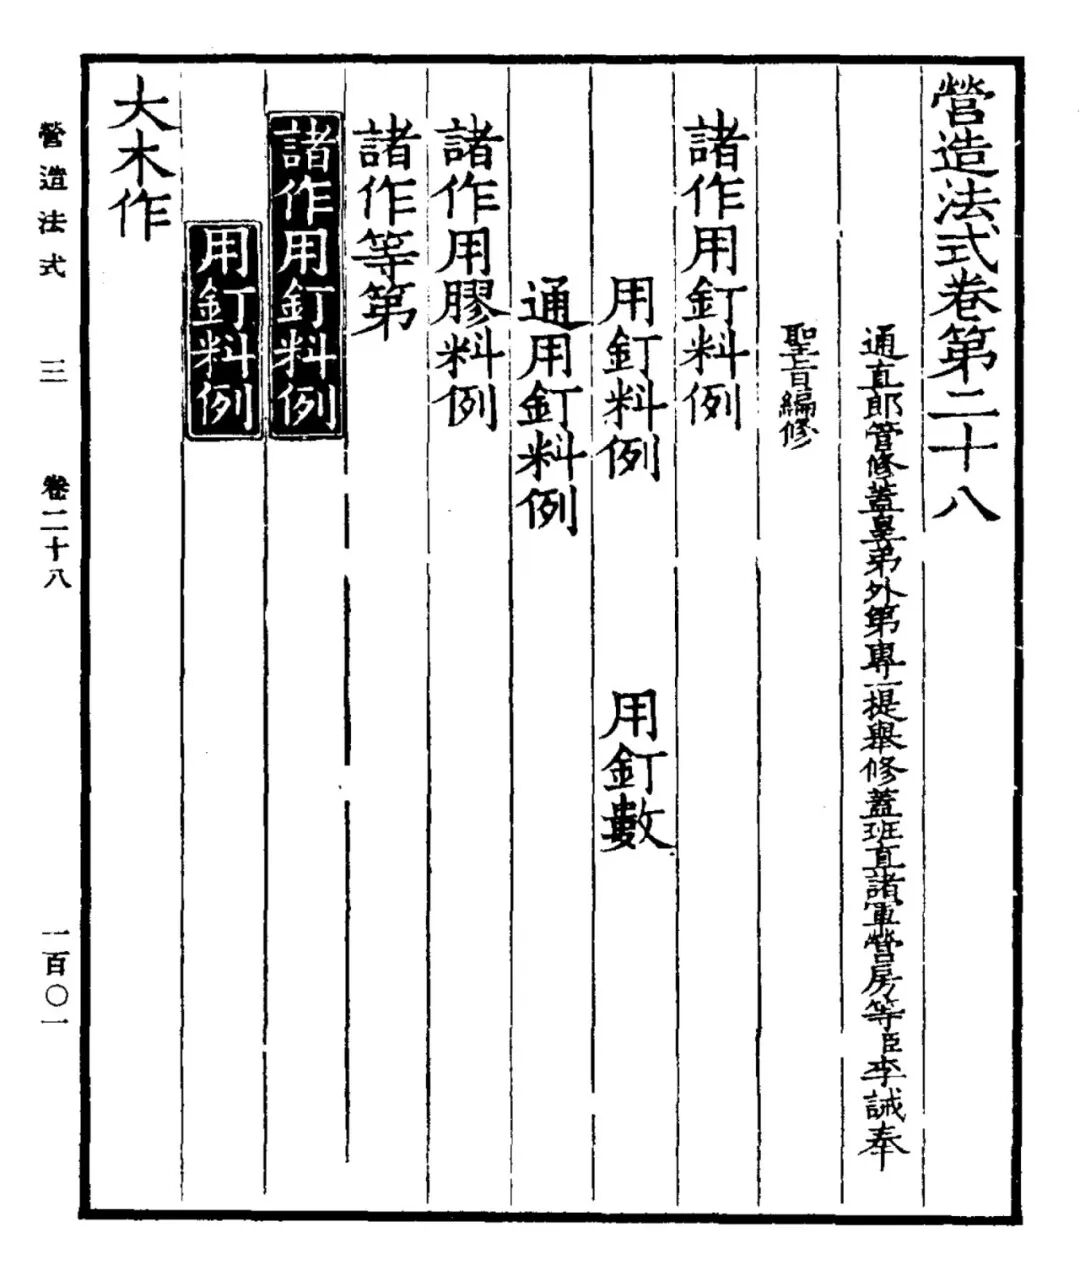 營造法式卷第二十八
通直郎管修蓋皇弟外第專一提舉修蓋班直諸軍營房等臣李誡奉
聖旨編修
諸作用釘料例
用釘料例 用釘數
通用釘料例
諸作用膠料例
諸作等第
諸作用釘料例
用釘料例
大木作
營造法式 三 卷二十八 一百〇一